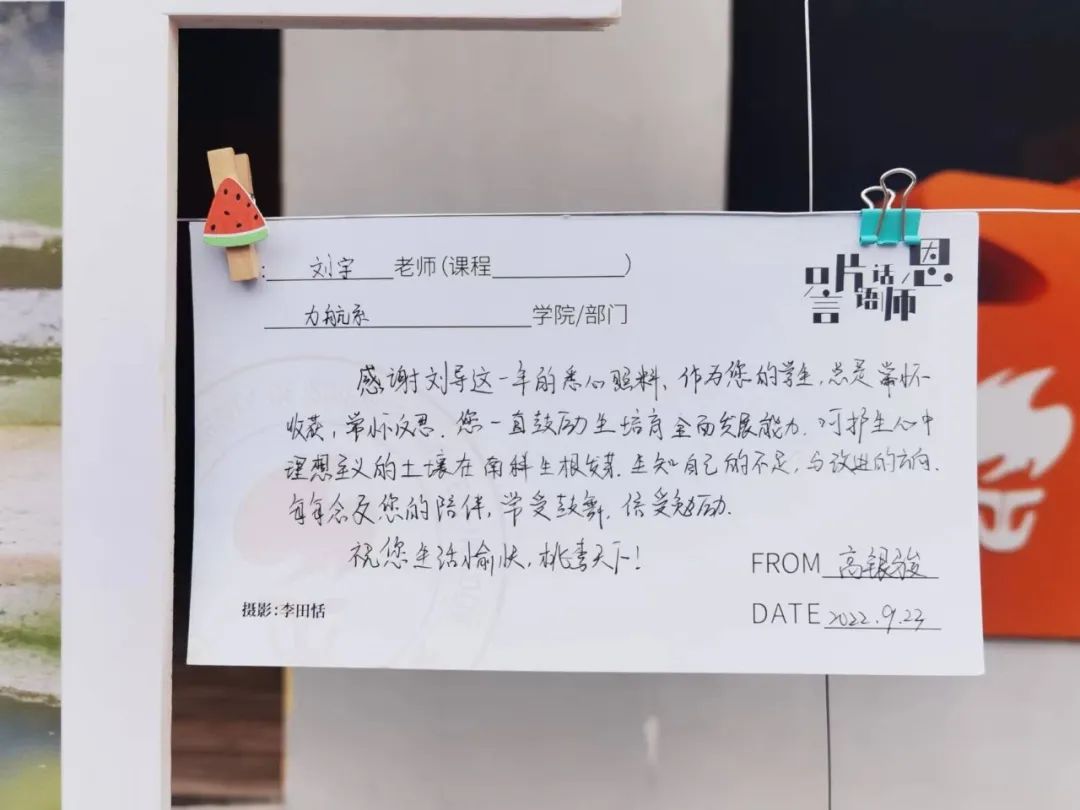 : 刘宇 老师(课程 )
力航系 学院/部门
只言片语话师恩
感谢刘导这一年的悉心照料，作为您的学生，总是常怀
收获，常怀反思。您一直鼓励生培育全面发展能力，呵护生心中
理想主义的土壤在南科生根发芽。生知自己的不足，与改进的方向。
每每念及您的陪伴，常受鼓舞，倍受勉励。
祝您生活愉快，桃李天下！
FROM 高银骏
DATE 2022.9.23
摄影:李田恬